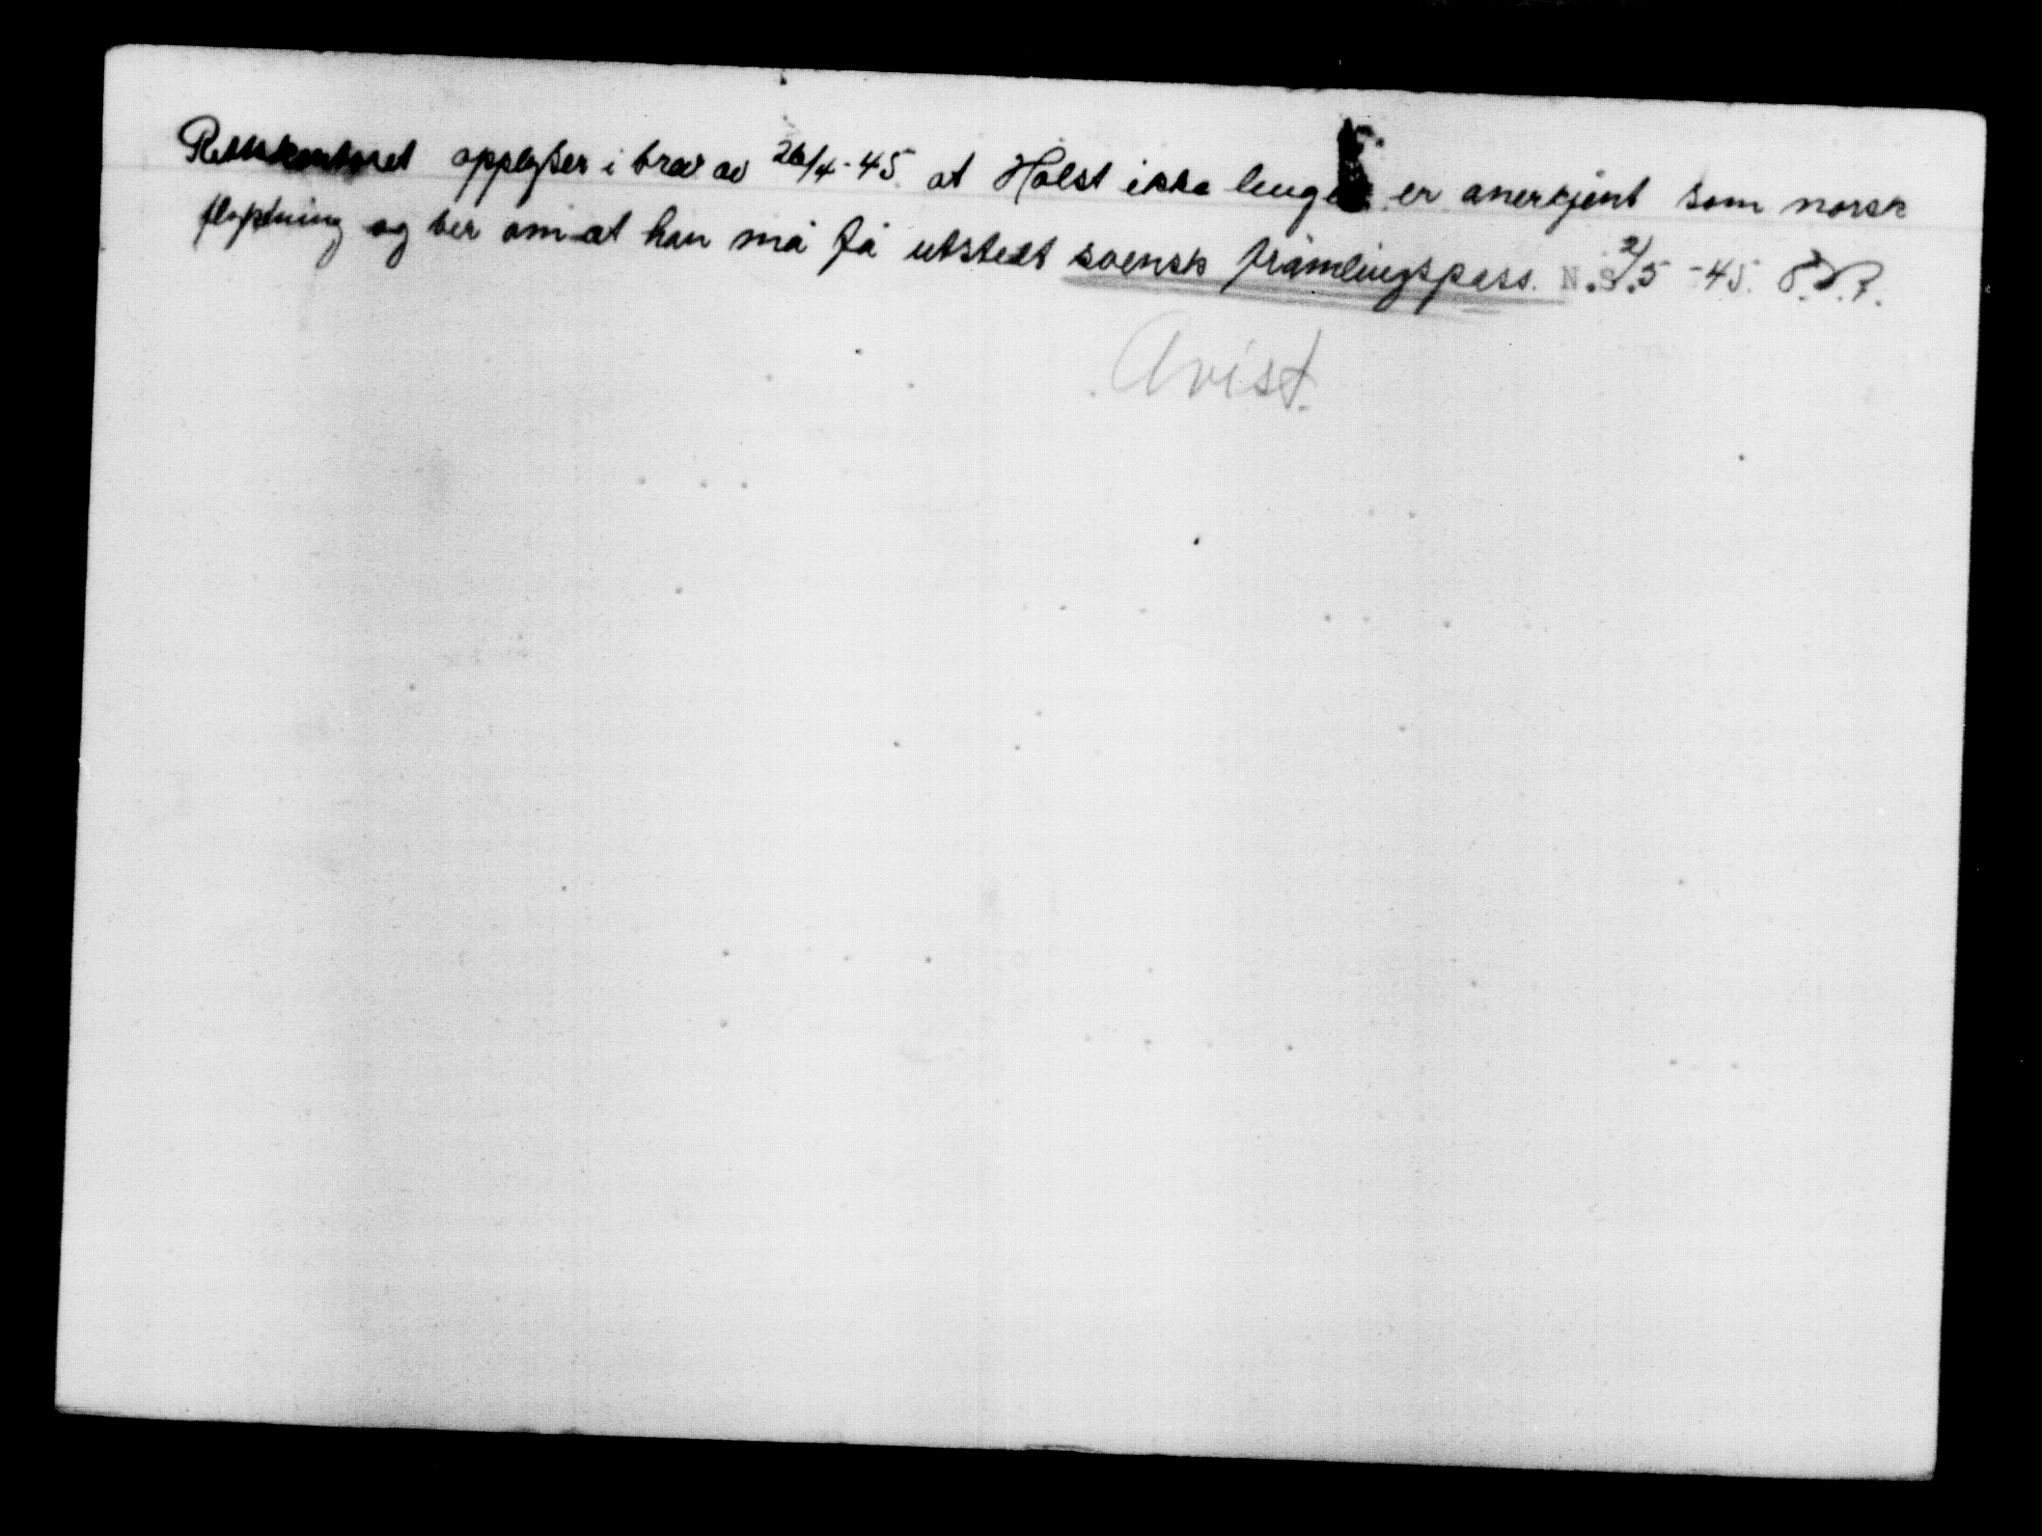 Rettskontoret opplyser i brev av 26/4-45 at Holst ikke lenger er anerkjent som norsk
flyktning og ber om at han må få utstedt svensk främlingspass. N.S. 2/5-45.
Avist.